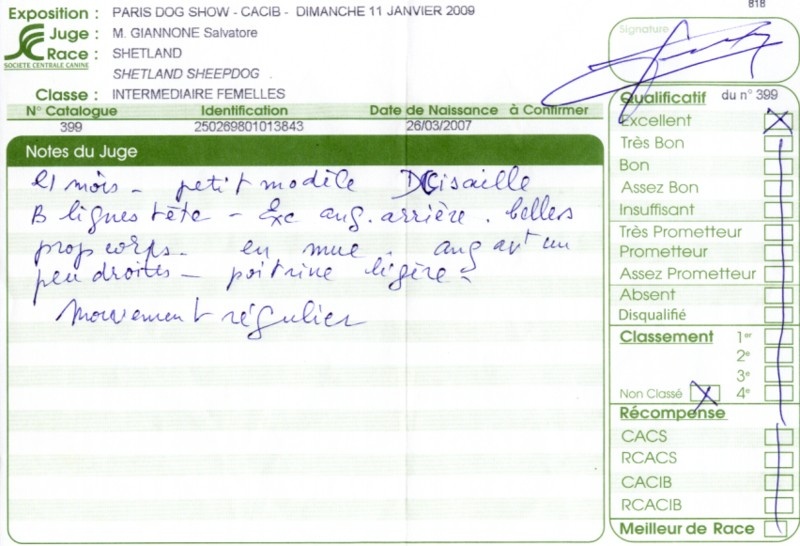 Exposition : PARIS DOG SHOW - CACIB - DIMANCHE 11 JANVIER 2009
818
Juge : M. GIANNONE Salvatore
Race : SHETLAND
SOCIETE CENTRALE CANINE
SHETLAND SHEEPDOG
Classe : INTERMEDIAIRE FEMELLES
Signature
N° Catalogue Identification Date de Naissance à Confirmer
399 250269801013843 26/03/2007
Notes du Juge
21 mois - petit modèle DCisaille
B lignes tête - Exc ang. arrière. belles
prop corps - en mue. ang avt un
peu droites - poitrine légère -
Mouvement régulier
Qualificatif du n° 399
Excellent
Très Bon
Bon
Assez Bon
Insuffisant
Très Prometteur
Prometteur
Assez Prometteur
Absent
Disqualifié
Classement 1er
2e
3e
Non Classé 4e
Récompense
CACS
RCACS
CACIB
RCACIB
Meilleur de Race